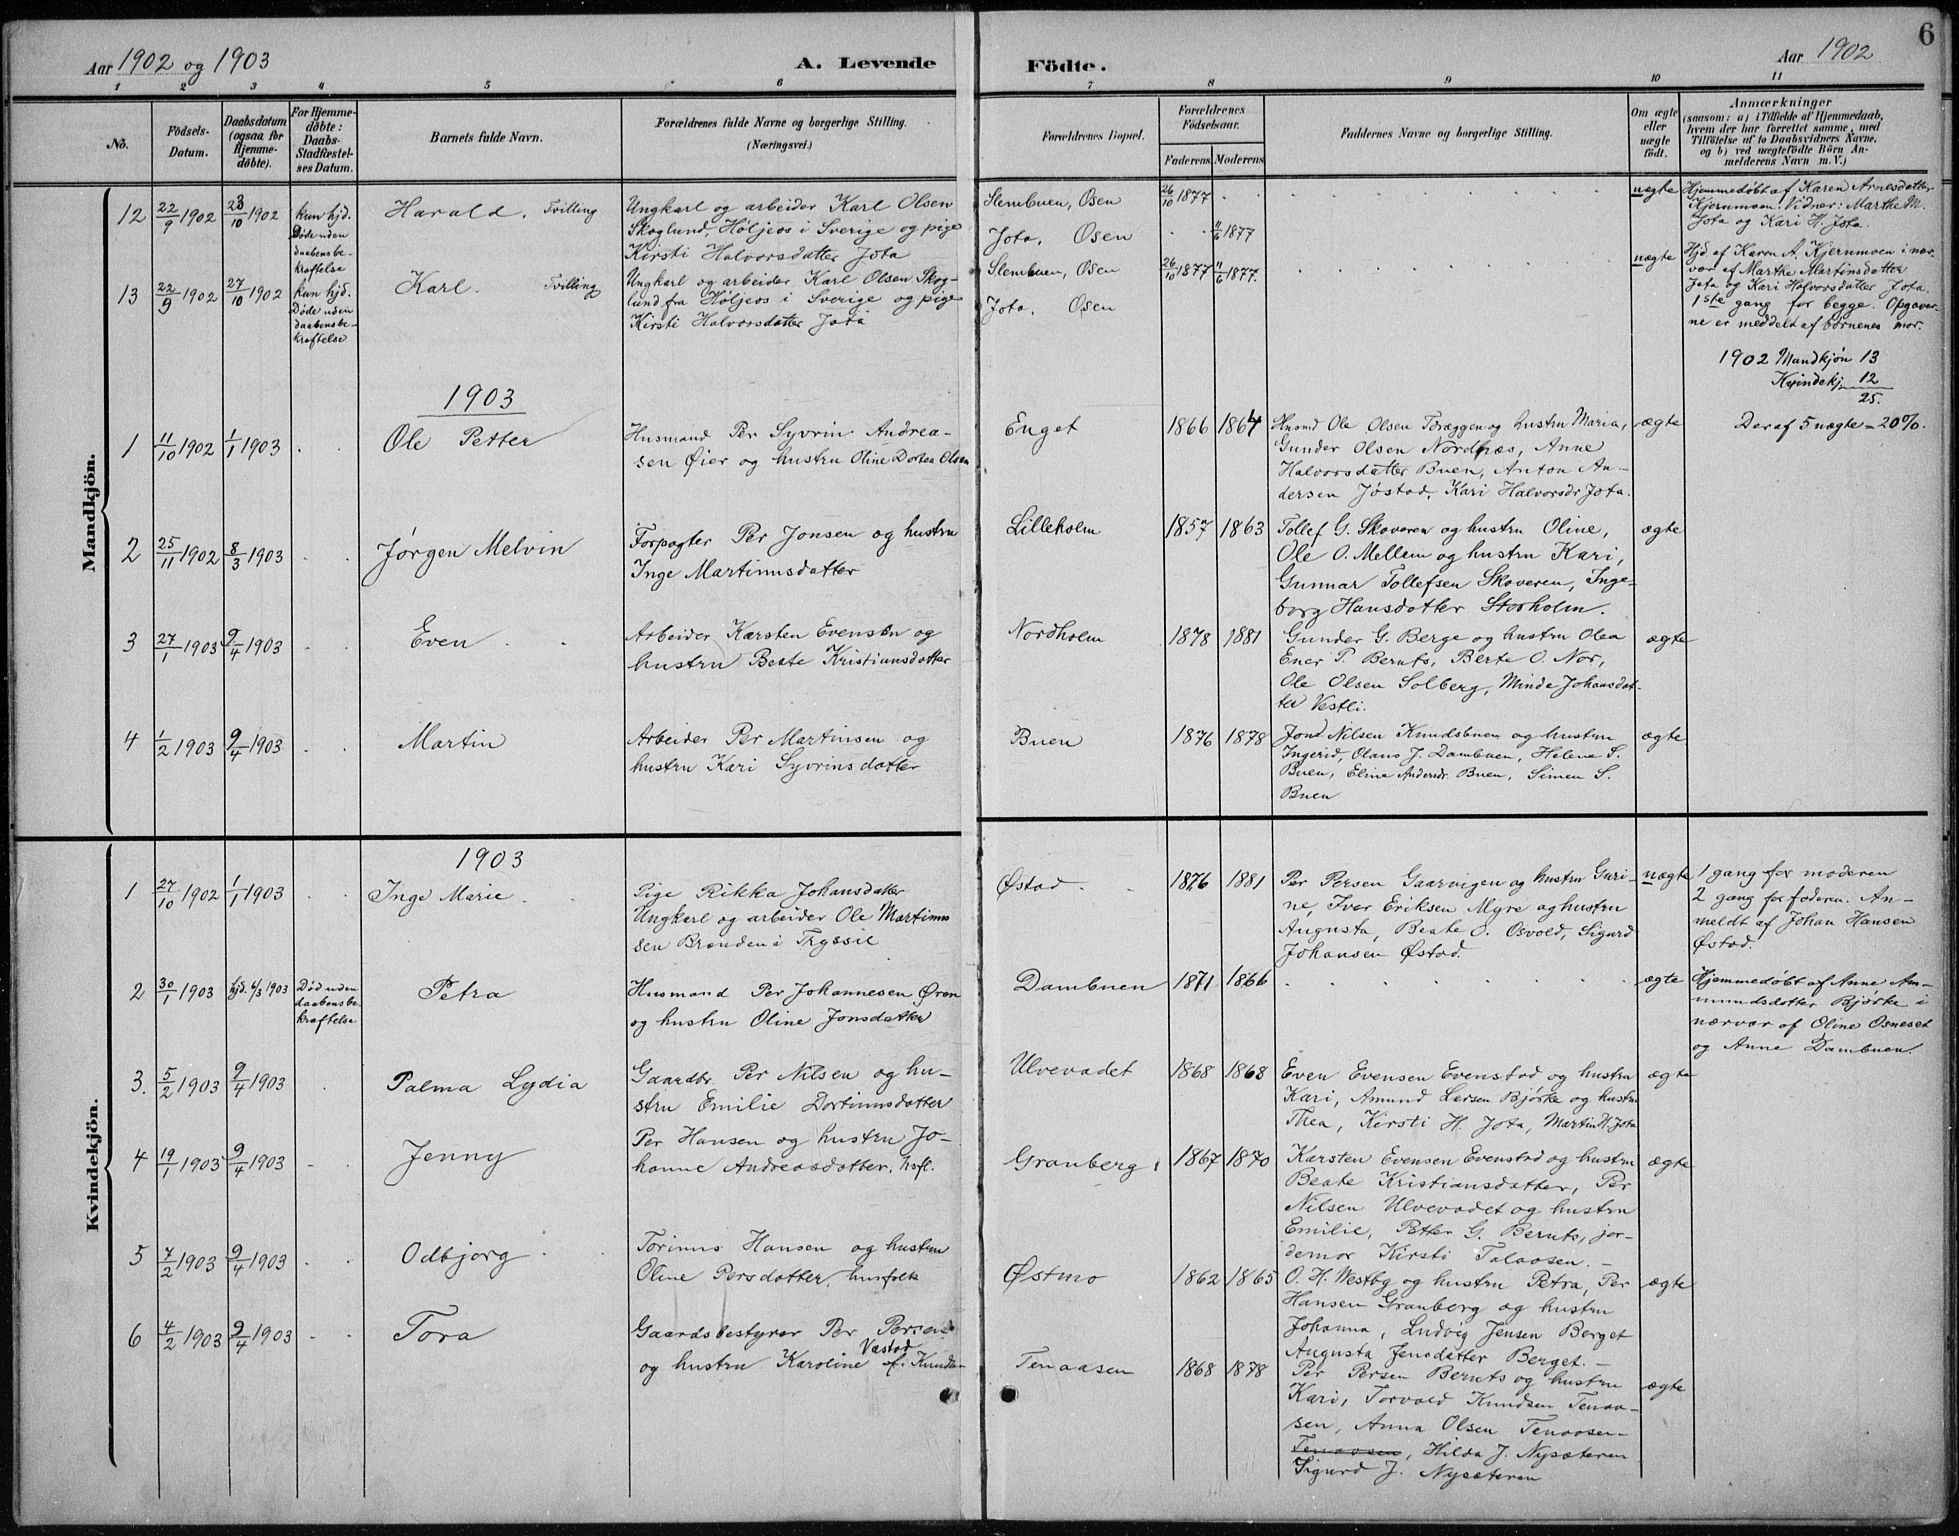 Aar 1902 og 1903
A. Levende
Födte.
Aar 1902
6
1 2 3 4 5 6
7 8 9 10 11
No.
Födsels-
Datum.
Daabsdatum
(ogsaa for
Hjemme-
döbte).
For Hjemme-
döbte:
Daabs-
Stadfæstel-
ses Datum.
Barnets fulde Navn.
Forældrenes fulde Navne og borgerlige Stilling.
(Næringsvei.)
Forældrenes Bopæl.
Forældrenes
Födselsaar.
Faderens. Moderens.
Faddernes Navne og borgerlige Stilling.
Om ægte
eller
uægte
födt.
Anmærkninger
(saasom: a) i Tilfælde af Hjemmedaab,
hvem der har forrettet samme, med
Tilföielse af to Daabsvidners Navne.
og b) ved uægtefödte Börn An-
melderens Navn m. V.)
Mandkjön.
12 22/9 1902 23/10 1902
kun hjd.
Døde uden
daabsbe-
kræftelse
Harald. Tvilling
Ungkarl og arbeider Karl Olsen
Skoglund, Höljeos i Sverige og pige
Kirsti Halvorsdatter Jota
Slembuen, Osen
Jota, Osen
26/10 1877
11/6 1877
uægte
Hjemmedøbt af Karen Arnesdatter
Kjernmoen. Vidner: Marthe M.
Jota og Kari H. Jota.
13 22/9 1902 27/10 1902
kun hjd.
Døde uden
daabensbe-
kræftelse
Karl. Tvilling
Ungkarl og arbeider Karl Olsen Skog-
lund fra Höljeos i Sverige og pige
Kirsti Halvorsdatter Jota
Slembuen, Osen
Jota, Osen
26/10 1877 11/6 1877.
uægte
Hjd. af Karen A. Kjernmoen i nær-
vær af Marthe Martinsdatter
Jota og Kari Halvorsdatter Jota.
1ste gang for begge. Opgaver-
ne er meddelt af börnenes mor.
1902 Mandkjön 13
Kvindekj. 12
25.
Deraf 5 uægte = 20%.
1903
1 11/10 1902 1/1 1903
Ole Petter
Husmand Per Syvrin Andrea-
sen Øier og hustru Oline Dortea Olsen
Enget
1866 1864
Husmd Ole Olsen Toræggen og hustru Maria,
Gunder Olsen Nordnæs, Anne
Halvorsdatter Buen, Anton An-
dersen Jøstad, Kari Halvorsdr Jota.
ægte
2 25/11 1902 8/3 1903
Jørgen Melvin
Forpagter Per Jonsen og hustru
Inge Martinusdatter
Lilleholm
1857 1863
Tollef G. Skoveren og hustru Oline,
Ole O. Mellem og hustru Kari,
Gunnar Tollefsen Skoveren, Inge-
borg Hansdatter Storholm.
ægte
3 27/1 1903 9/4 1903
Even
Arbeider Karsten Evensen og
hustru Beate Kristiansdatter
Nordholm
1878 1881
Gunder G. Berge og hustru Olea
Ener P. Bernts, Berte O. Nor,
Ole Olsen Solberg, Minda Johansdat-
ter Vestli.
ægte
4 1/2 1903 9/4 1903
Martin
Arbeider Per Martinsen og
hustru Kari Syvrinsdatter
Buen
1876 1878
Jond Nilsen Knudsbuen og hustru
Ingerid, Olaus J. Dambuen, Helena S.
Buen, Elina Andersdr. Buen, Simen S.
Buen
ægte
Kvindekjön.
1903
1 27/10 1902 1/1 1903
Inge Marie
Pige Rikka Johansdatter
Ungkarl og arbeider Ole Martinus
sen Brænden i Tryssil
Østad.
1876 1881
Per Persen Gaarvigen og hustru Guri-
ne, Iver Eriksen Myre og hustru
Augusta, Beate O. Osvold, Sigurd
Johansen Østad.
uægte
1 gang for moderen
2 gang for faderen. An-
meldt af Johan Hansen
Østad.
2 30/1 1903 hjd. 6/3 1903
Død uden
daabensbe-
kræftelse
Petra
Husmand Per Johannesen Øren
og hustru Oline Jonsdatter
Dambuen
1871 1866
ægte
Hjemmedøbt af Anne Am-
mundsdatter Bjørke i
nærvær af Oline Osneset
og Anne Dambuen.
3. 5/2 1903 9/4 1903
Palma Lydia
Gaardbr. Per Nilsen og hu-
stru Emilie Dortinusdatter
Ulvevadet
1868 1868
Even Evensen Evenstad og hustru
Kari, Amund Larsen Bjørke og hustru
Thea, Kirsti H. Jota, Martin H. Jota
ægte
4 19/1 1903 9/4 1903
Jenny
Per Hansen og hustru Jo-
hanne Andreasdatter, hsfl.
Granberg
1867 1870
Karsten Evensen Evenstad og hustru
Beate Kristiansdatter, Per
Nilsen Ulvevadet og hustru
Emilie, Petter G. Bernts, jor-
demor Kirsti Talaasen.
ægte
5 7/2 1903 9/4 1903
Odbjørg
Torinus Hansen og hustru
Oline Persdatter, husfolk
Østmo
1862 1865
O. H. Westby og hustru Petra, Per
Hansen Granberg og hustru
Johanna, Ludvig Jensen Berget
Augusta Jensdatter Berget.
ægte
6 4/2 1903 9/4 1903
Tora
Gaardsbestyrer Per Persen
Vestad
og hustru Karoline f. Knuds-
Tenaasen
1868 1878
Per Persen Bernts og hustru
Kari, Torvald Knudsen Tenaa-
sen, Anna Olsen Tenaasen-
Tenaasen, Hilda J. Nysæteren
Sigurd J. Nysæteren
ægte